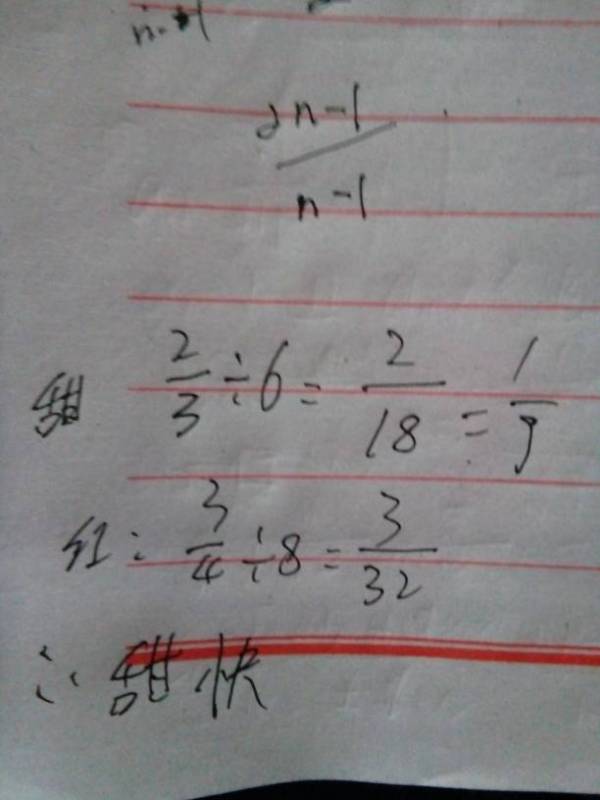 2n-1
n-1
甜 2/3÷6=2/18=1/9
红: 3/4÷8=3/32
∴甜快